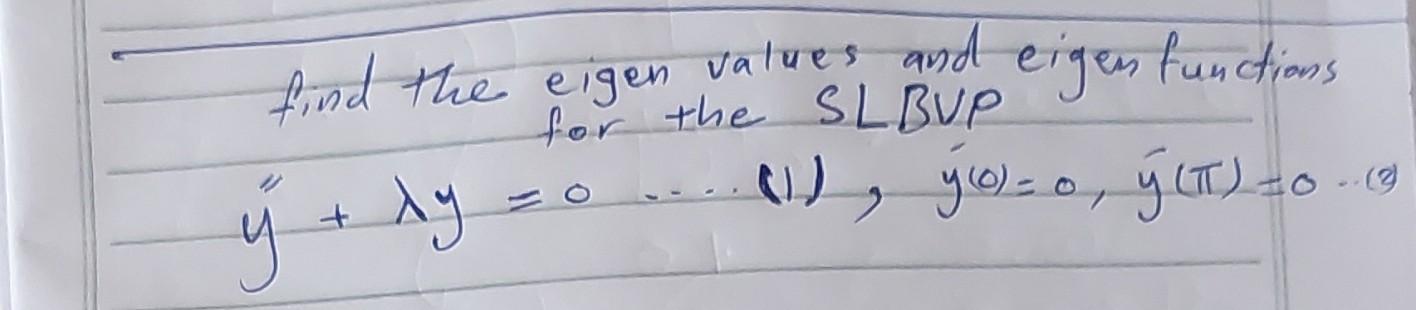 find the eigen values and eigen functions
for the SLBVP
y'' + λy = 0 .... (1) , y'(0) = 0, y'(π) = 0 ..(2)